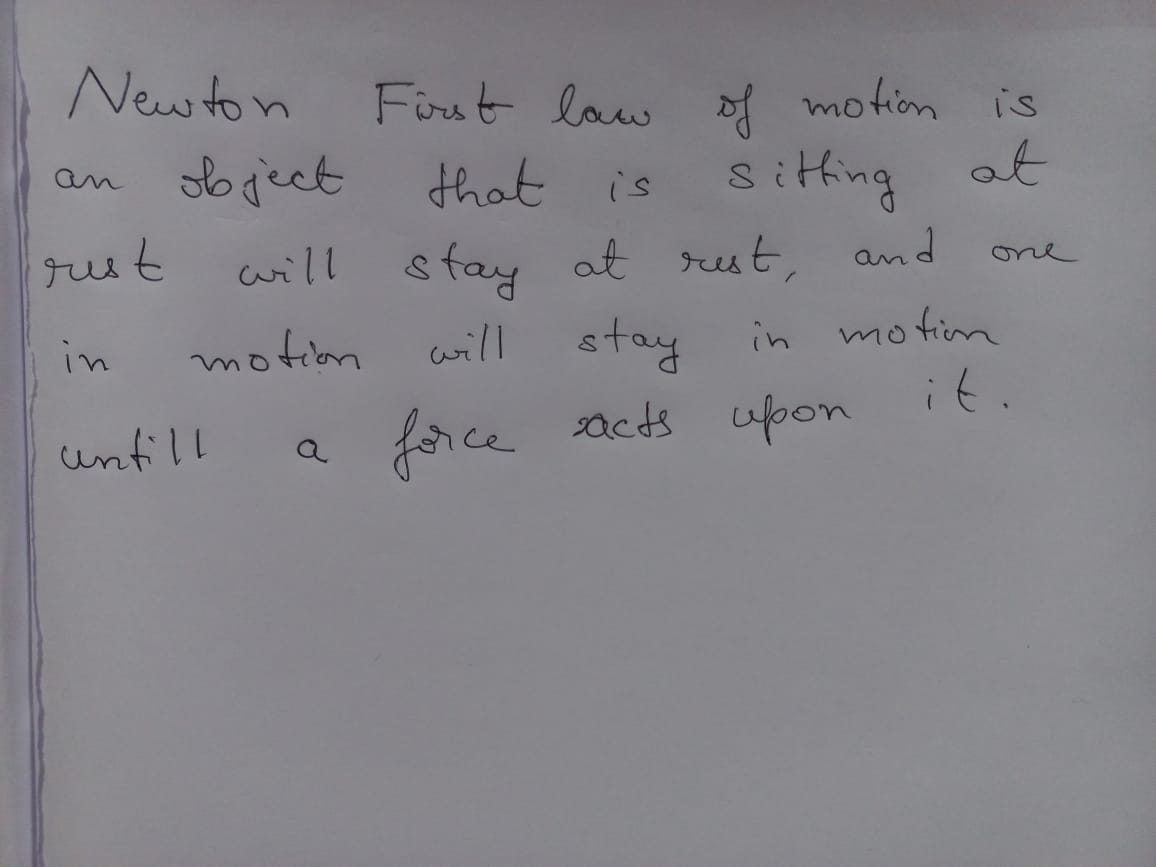 Newton First law of motion is
an object that is sitting at
rest will stay at rest, and one
in motion will stay in motion
untill a force acts upon it.